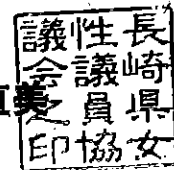 長崎県女
性議員協
議会之印
美